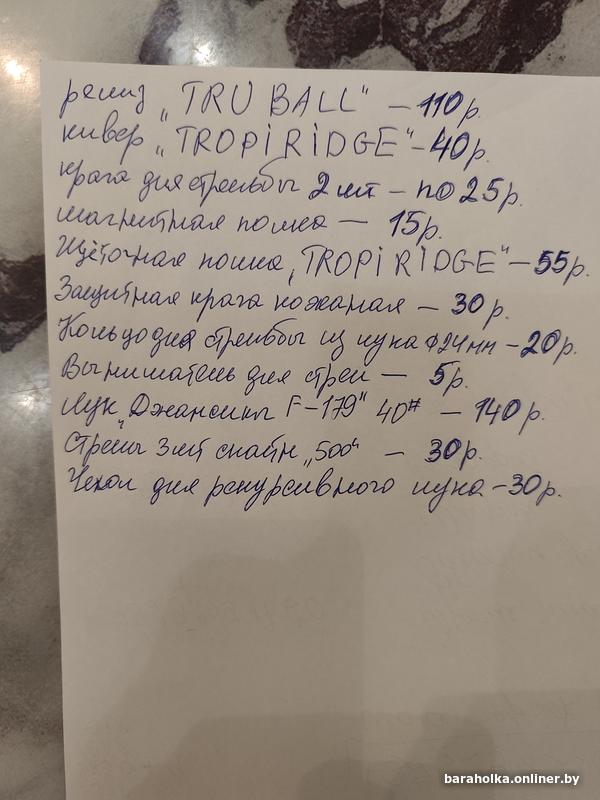 релиз „TRU BALL" – 110р.
кивер „TROPi RiDGE" – 40р.
крага для стрельбы 2шт – по 25р.
магнитная полка – 15р.
Щёточная полка „TROPi RiDGE" – 55р.
Защитная крага кожаная – 30р.
Кольцо для стрельбы из лука ф24мм – 20р.
Выниматель для стрел – 5р.
Лук „Джансины F-179" 40# – 140р.
Стрелы 3шт спайн „500" – 30р.
Чехол для рекурсивного лука – 30р.
baraholka.onliner.by